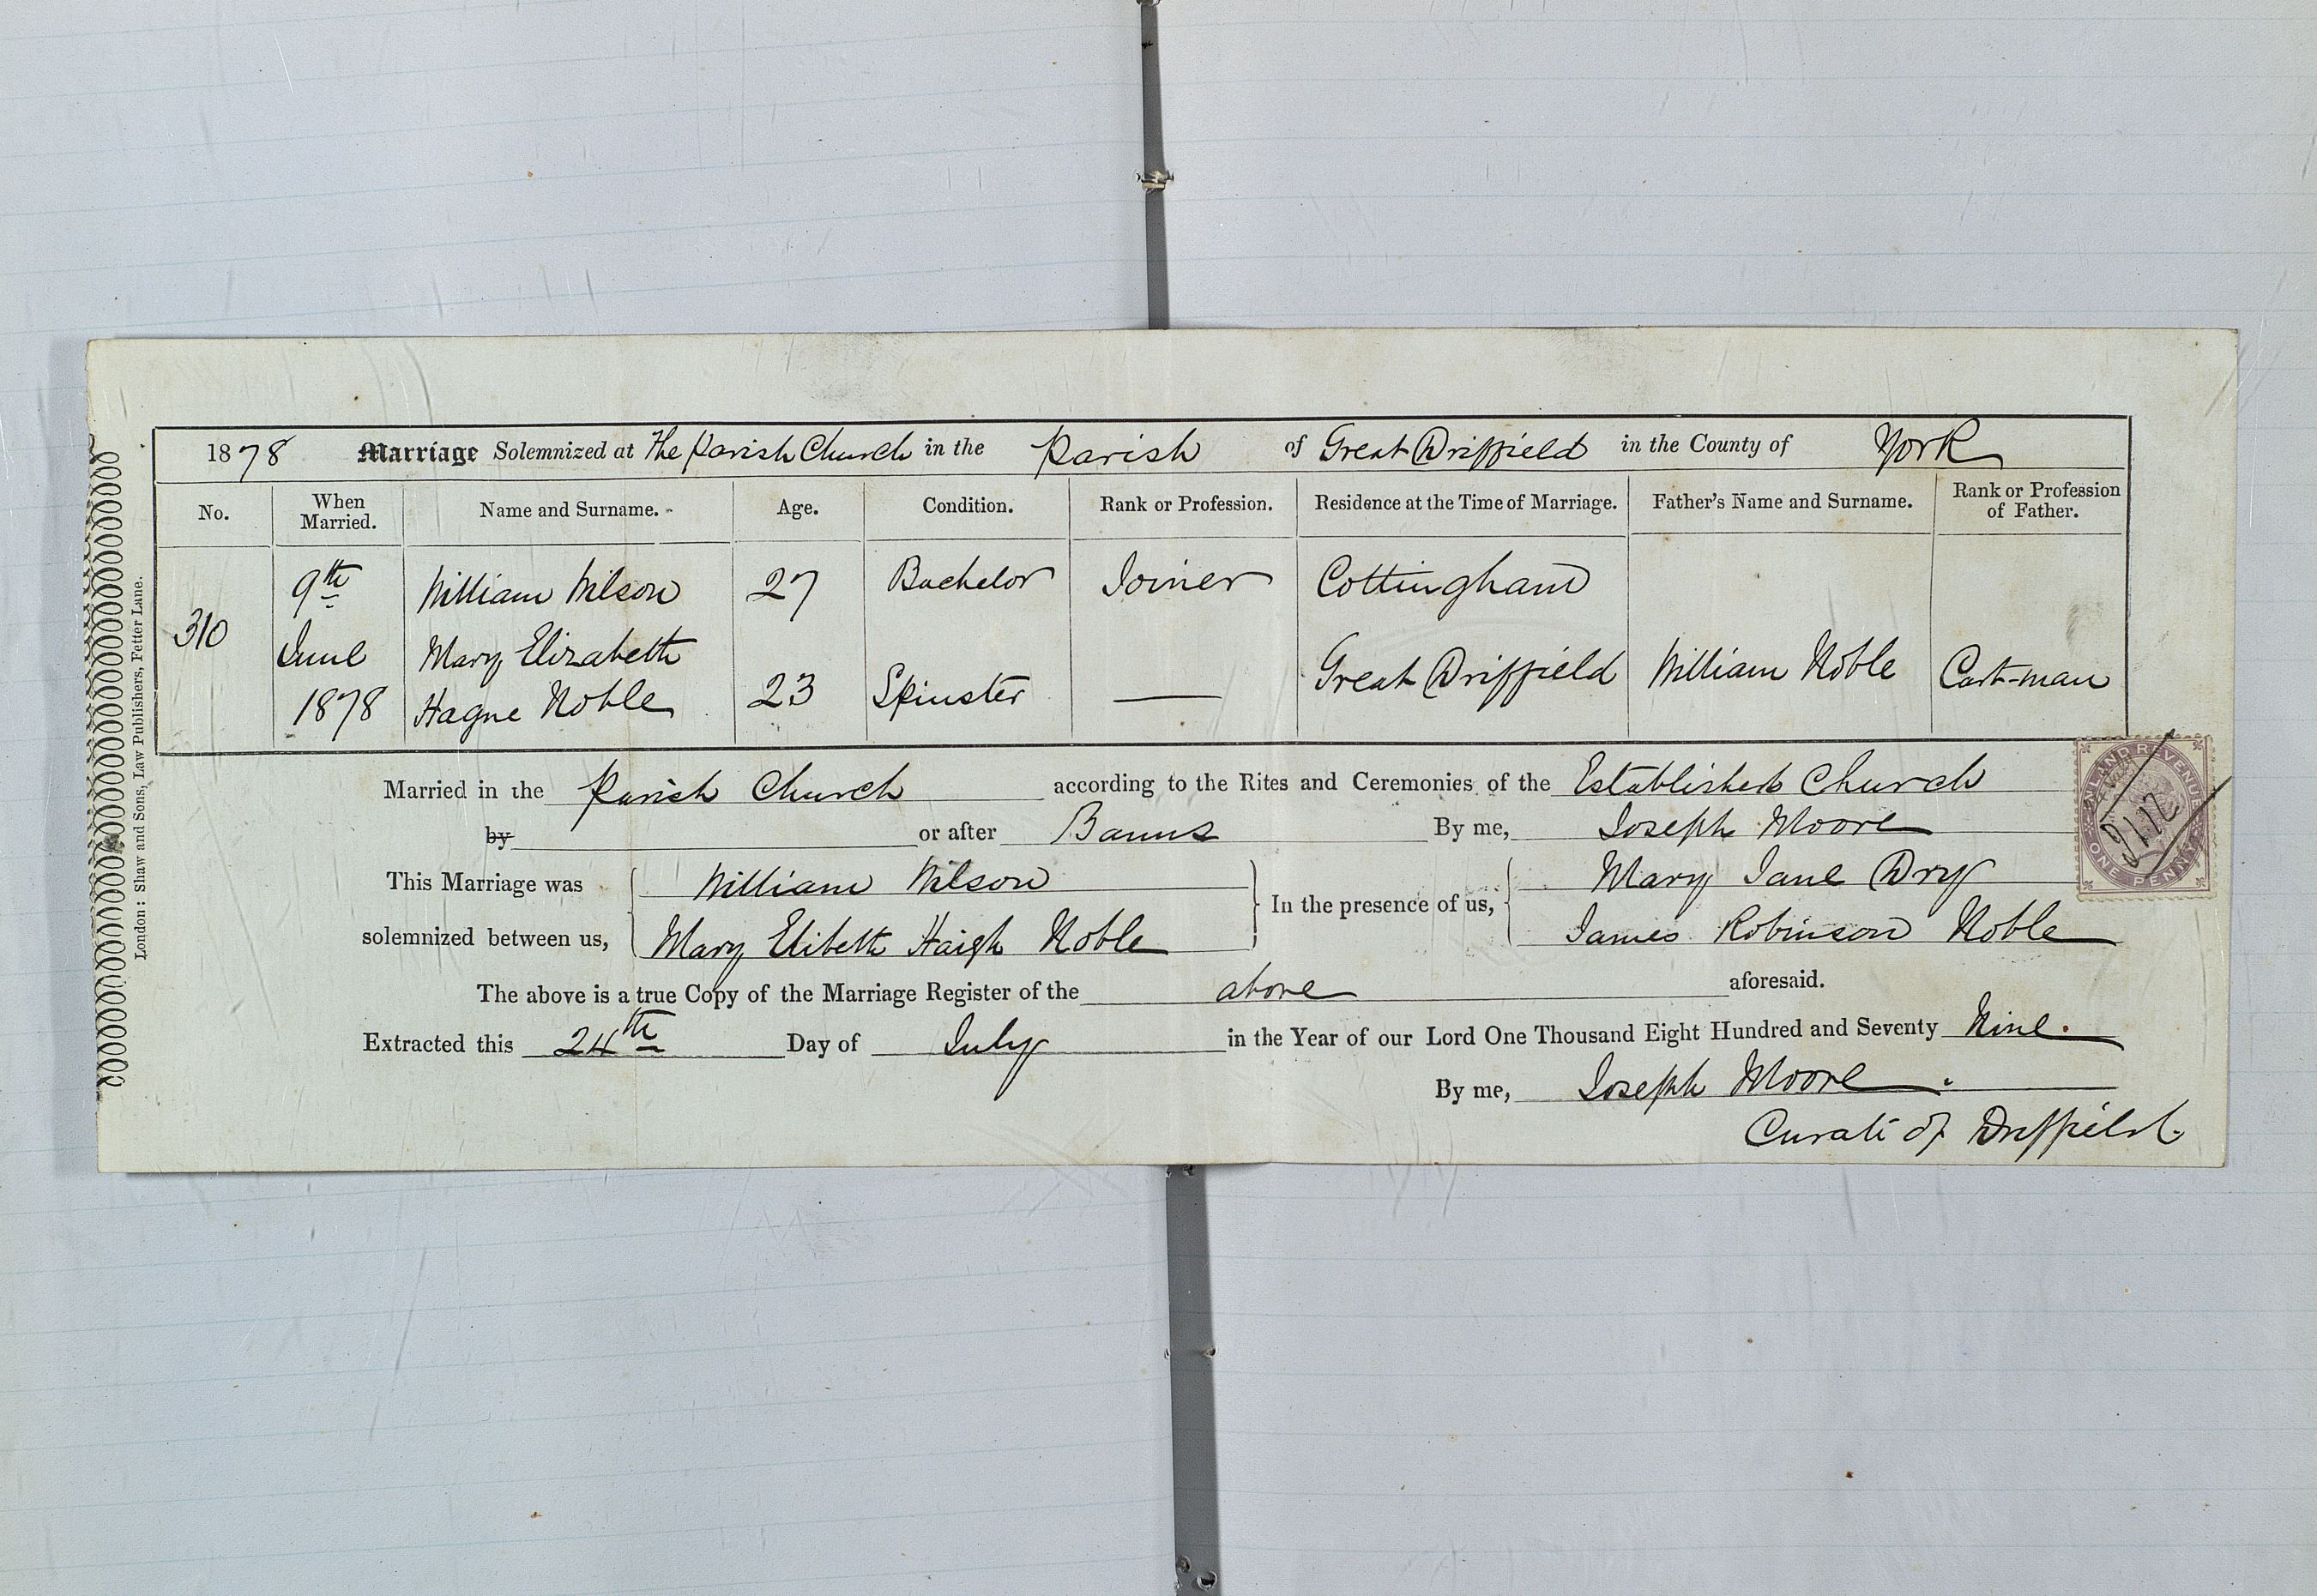 1878 Marriage Solemnized at The Parish Church in the Parish of Great Driffield in the County of York
No. When Married. Name and Surname. Age. Condition. Rank or Profession. Residence at the Time of Marriage. Father's Name and Surname. Rank or Profession of Father.
9th William Wilson 27 Bachelor Joiner Cottingham
310
June Mary Elizabeth Great Driffield William Noble Cart-man
1878 Hague Noble 23 Spinster —
Married in the Parish Church according to the Rites and Ceremonies of the Established Church
by or after Banns By me, Joseph Moore
This Marriage was William Wilson In the presence of us, Mary Jane Dry
solemnized between us, Mary Elibeth Haigh Noble James Robinson Noble
The above is a true Copy of the Marriage Register of the above aforesaid.
Extracted this 24th Day of July in the Year of our Lord One Thousand Eight Hundred and Seventy Nine.
By me, Joseph Moore.
Curate of Driffield.
London: Shaw and Sons, Law Publishers, Fetter Lane.
INLAND REVENUE
ONE PENNY